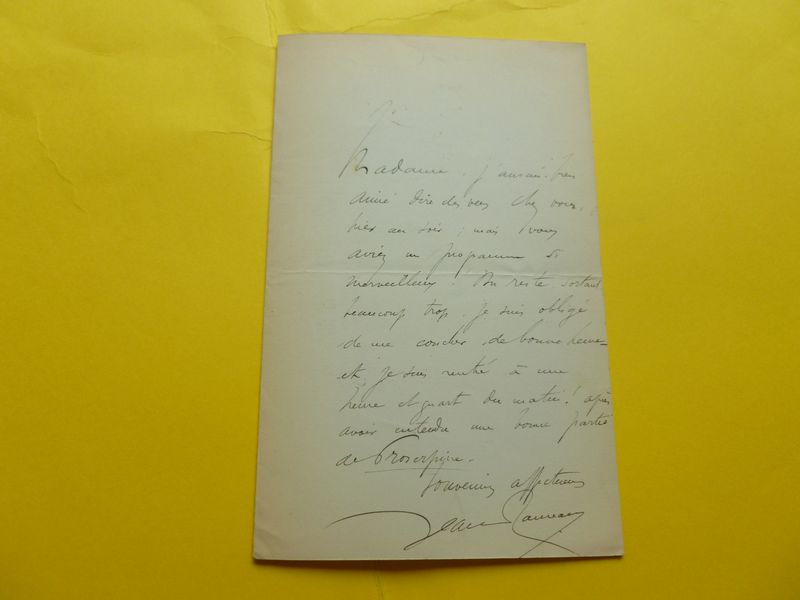 Madame, j'aurais bien
aimé dire des vers chez vous,
hier au soir ; mais vous
aviez un programme si
merveilleux ! Du reste, sortant
beaucoup trop, je suis obligé
de me coucher de bonne heure
et je suis rentré à une
heure et quart du matin ! après
avoir entendu une bonne partie
de Proserpine.
Souvenirs affectueux
Jean Rameau